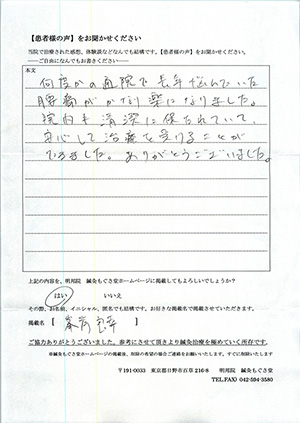 【患者様の声】をお聞かせください
当院で治療された感想、体験談などなんでも結構です。【患者様の声】をお聞かせください。
――ご自由になんでもお書きください――
本文
何度かの通院で長年悩んでいた
腰痛がかなり楽になりました。
院内も清潔に保たれていて、
安心して治療を受けることが
できました。ありがとうございました。
上記の内容を、明邦院 鍼灸もぐさ堂ホームページに掲載してもよろしいでしょうか?
はい いいえ
その際、お名前、イニシャル、匿名でも結構です。お好きな掲載名で掲載させていただきます。
掲載名【 】
ご協力ありがとうございました。参考にさせて頂きより鍼灸治療を極めていく所存です.
※鍼灸もぐさ堂ホームページの掲載後、削除の希望の場合ご連絡をお願いいたします。すぐに削除いたします
〒191-0033 東京都日野市百草 216-8 明邦院 鍼灸もぐさ堂
TEL.FAX) 042-594-3580